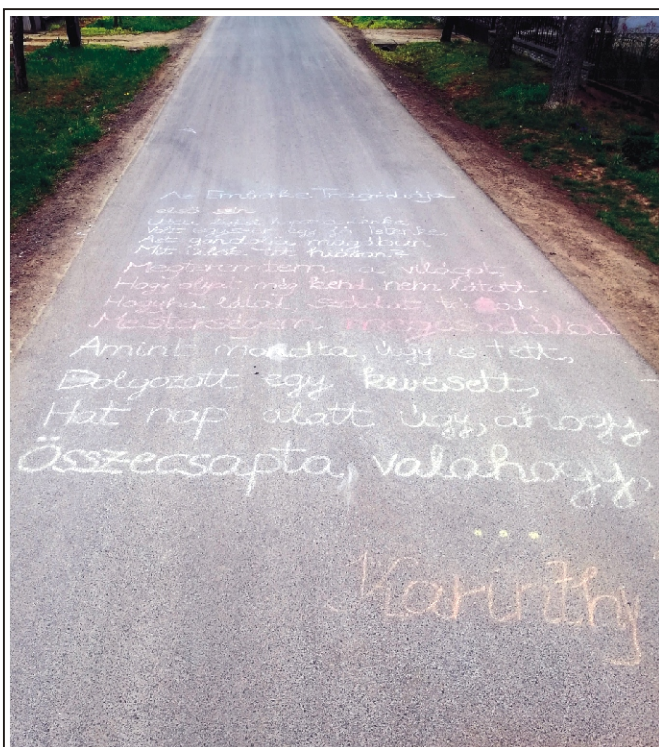 Az Emberke Tragédiája
első szín
Volt egyszer egy jó Istenke,
Azt gondolja magában,
Mit ülök itt
Megteremtem a világot,
Hogy olyat még kend nem látott.
Hogyha látod, szádat
Mesterségem megcsodálod
Amint mondta, úgy is tett,
Bolyozott egy keveset,
Hat nap alatt úgy, ahogy
Összecsapta, valahogy,
...
Karinthy